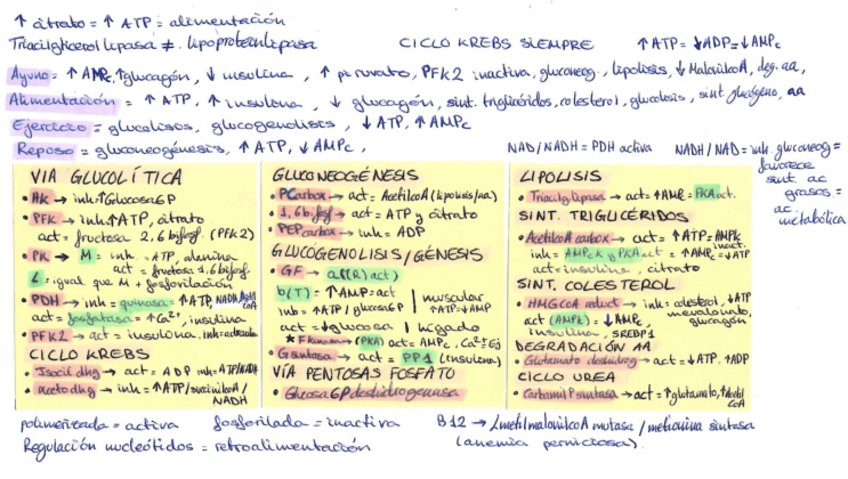 ↑ citrato = ↑ ATP = alimentación
Triacilglicerol lipasa ≠ lipoproteinlipasa CICLO KREBS SIEMPRE ↑ATP = ↓ADP = ↓AMPc
Ayuno = ↑ AMPc, ↑glucagón, ↓ insulina, ↑ piruvato, PFK2 inactiva, gluconeog., lipolisis, ↓ MalonilCoA, deg. aa,
Alimentación = ↑ ATP, ↑ insulina, ↓ glucagón, sint. triglicéridos, colesterol, glucolisis, sint. glucógeno, aa
Ejercicio = glucolisis, glucogenolisis, ↓ ATP, ↑ AMPc
Reposo = gluconeogénesis, ↑ ATP, ↓ AMPc,
NAD/NADH = PDH activa NADH/NAD = inh. gluconeog =
favorece
sint ac
grasos =
ac.
metabólica
VIA GLUCOLÍTICA
• HK → inh ↑Glucosa6P
• PFK → inh ↑ATP, citrato
act = fructosa 2,6 bifosf. (PFK2)
• PK → M = inh = ATP, alanina
act = fructosa 1,6 bifosf.
L = igual que M + fosforilación
• PDH → inh = quinasa = ↑ATP, NADH, Acetil CoA
act = fosfatasa = ↑Ca²⁺, insulina
• PFK2 → act = insulina.
CICLO KREBS
• Isocil dhg → act = ADP inh = ATP/NADH
• αceto dhg → inh = ↑ATP/succinilcoA/
NADH
GLUCONEOGÉNESIS
• PCarbox → act = AcetilcoA (lipolisis/aa)
• 1,6 bifosf → act = ATP y citrato
• PEPcarbox → inh = ADP
GLUCOGENOLISIS/GÉNESIS
• GF → a(R) act)
b(T) = ↑AMP = act
inh = ↑ATP/glucosa6P | muscular
↑ATP = ↓AMP
act = ↓glucosa | hígado
(PKA) act = AMPc, Ca²⁺Ej
• Gsintasa → act = PP1 (insulina)
VÍA PENTOSAS FOSFATO
• Glucosa 6P deshidrogenasa
LIPOLISIS
• Triacilg lipasa → act = ↑AMPc = PKA act.
SINT. TRIGLICÉRIDOS
• AcetilcoA carbox → act = ↑ATP = AMPk
inact.
inh = AMPck y PKA act = ↑AMPc = ↓ATP
act = insulina, citrato
SINT. COLESTEROL
• HMGCoA reduct → inh = colesterol, ↓ATP
mevalonato,
glucagón
act (AMPk) = ↓AMPc,
insulina, SREBP1
DEGRADACIÓN AA
• Glutamato deshidrog → act = ↓ATP, ↑ADP
CICLO UREA
• Carbamil P sintasa → act = ↑glutamato, ↑Acetil
CoA
polimerizada = activa fosforilada = inactiva B12 → LmetilmalonilcoA mutasa / metionina sintasa
Regulación nucleótidos = retroalimentación (anemia perniciosa).